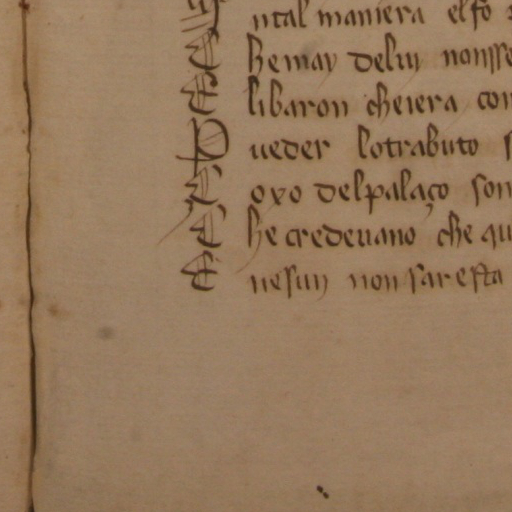 ntal maniera el fo
C he may de luy nonsse
E libaron che iera con
P ueder lo trabuto s
C oxo del palaço son
C he credeuano che qu
E nesun non sar esta